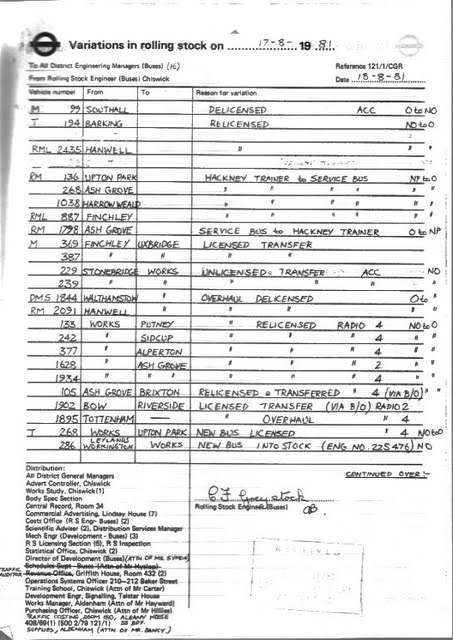 Variations in rolling stock on 17-8- 1981
To All District Engineering Managers (Buses) (16)
Reference 121/1/CGR
From Rolling Stock Engineer (Buses) Chiswick
Date 18-8-81
Vehicle number From To Reason for variation
M 99 SOUTHALL DELICENSED ACC O to NO
T 194 BARKING RELICENSED NO to O
RML 2435 HANWELL " "
RM 136 UPTON PARK HACKNEY TRAINER to SERVICE BUS NP to O
268 ASH GROVE " " " " "
1038 HARROW WEALD " " " " "
RML 887 FINCHLEY " " " " "
RM 1798 ASH GROVE SERVICE BUS to HACKNEY TRAINER O to NP
M 369 FINCHLEY UXBRIDGE LICENSED TRANSFER
387 " " " "
229 STONEBRIDGE WORKS UNLICENSED TRANSFER ACC NO
239 " " " " " "
DMS 1844 WALTHAMSTOW " OVERHAUL DELICENSED O to "
RM 2091 HANWELL " " " " "
133 WORKS PUTNEY " RELICENSED RADIO 4 NO to O
242 " SIDCUP " " " 4 " "
377 " ALPERTON " " " 4 " "
1628 " ASH GROVE " " " 2 " "
1934 " " " " " 4 " "
105 ASH GROVE BRIXTON RELICENSED & TRANSFERRED " 4 (VIA B/O) " "
1902 BOW RIVERSIDE LICENSED TRANSFER (VIA B/O) RADIO 2
1895 TOTTENHAM — " OVERHAUL " 4
T 268 WORKS UPTON PARK NEW BUS LICENSED " 4 NO to O
286 LEYLANDS WORKINGTON WORKS NEW BUS INTO STOCK (ENG NO. 225476) NO
Distribution:
CONTINUED OVER:-
All District General Managers
Advert Controller, Chiswick
Works Study, Chiswick (1)
Body Spec Section
Central Record, Room 34
Rolling Stock Engineer (Buses)
Commercial Advertising, Lindsay House (7)
Costs Office (R S Engr- Buses) (2)
Scientific Adviser (2), Distribution Services Manager
Mech Engr (Development - Buses) (3)
R S Licensing Section (5), R S Inspection
Statistical Office, Chiswick (2)
Director of Development (Buses) (ATTN OF MR SYMON)
Schedules Supt - Buses (Attn of Mr Hyslop)
TRAFFIC AUDITOR Revenue Office, Griffith House, Room 432 (2)
Operations Systems Officer 210-212 Baker Street
Training School, Chiswick (Attn of Mr Carter)
Development Engr, Signalling, Telstar House
Works Manager, Aldenham (Attn of Mr Hayward)
Purchasing Officer, Chiswick (Attn of Mr Hillies)
TRAFFIC COSTING, ROOM 150, ALBANY HOUSE
408/69(1) (500 2/79 121/1) 55 BDY.
SUPPLIES, ALDENHAM (ATTN OF MR. DANCY)